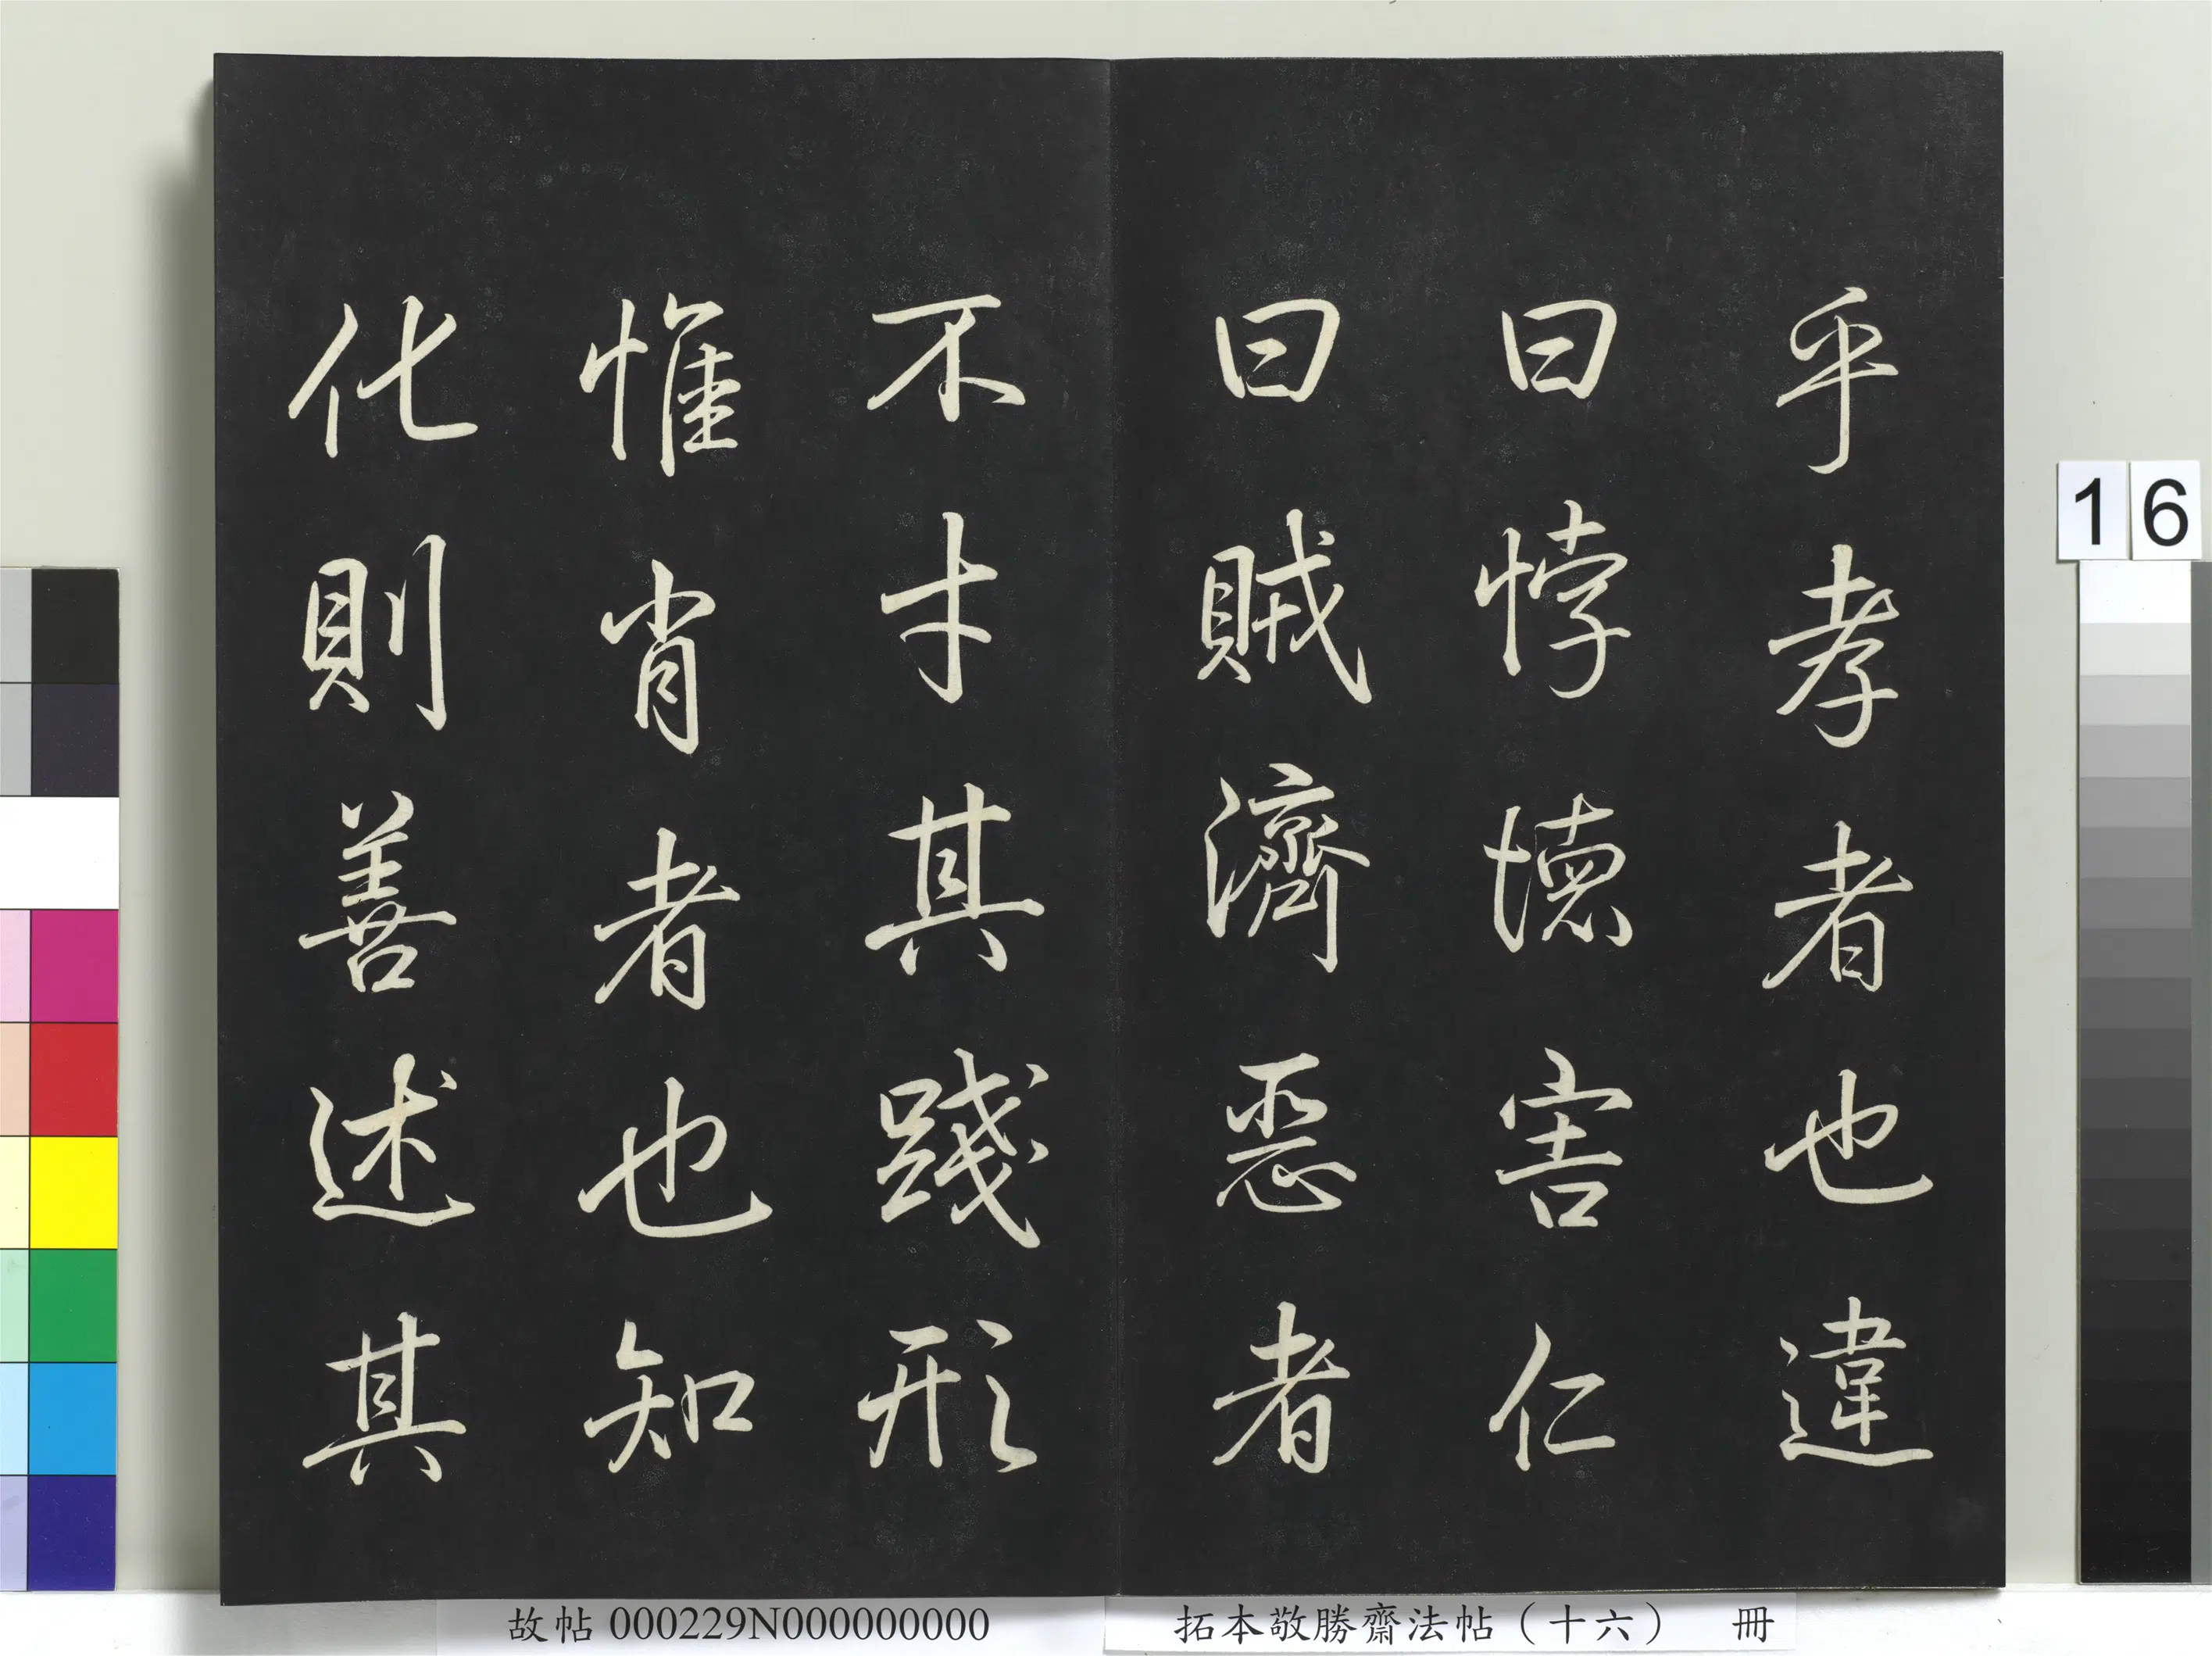 乎孝者也違
曰悖德害仁
曰賊濟惡者
不才其踐形
惟肖者也知
化則善述其
16
故帖 000229N000000000
拓本敬勝齋法帖（十六） 冊